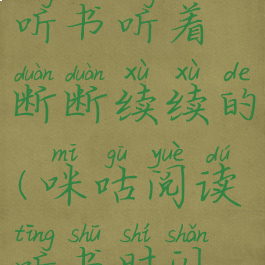 听书听着
duàn duàn xù xù de
断断续续的
mī gū yuè dú
(咪咕阅读
tīng shū shí shǎn
听书时闪